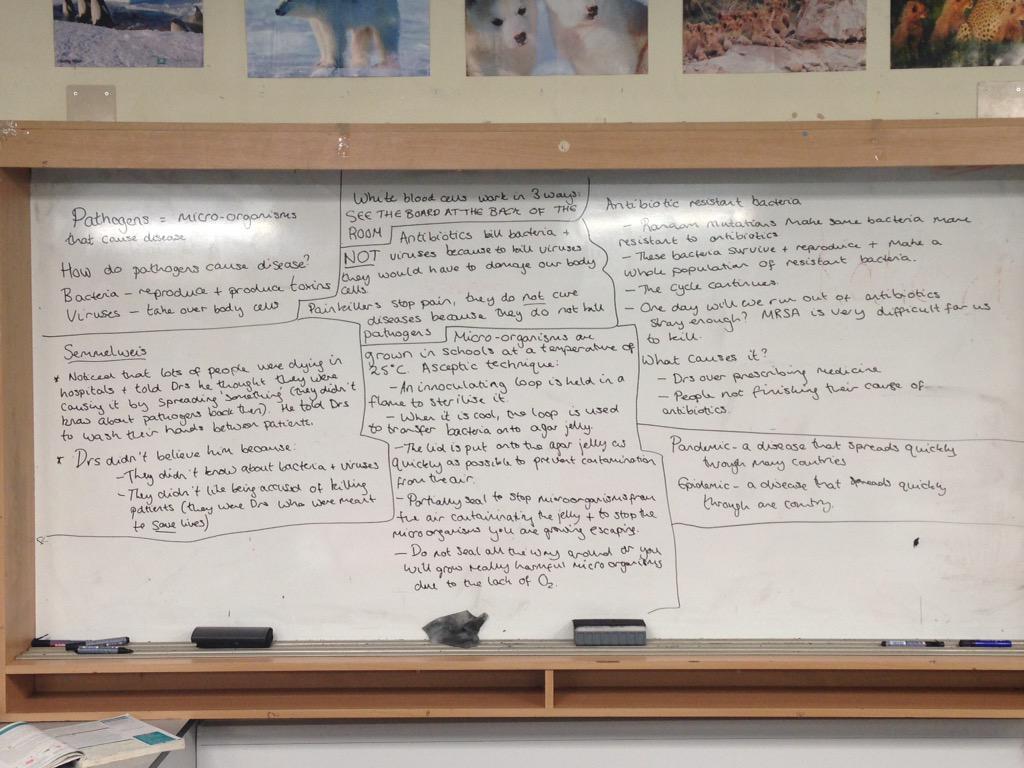 Pathogens = micro-organisms
that cause disease
How do pathogens cause disease?
Bacteria - reproduce + produce toxins
Viruses - take over body cells
White blood cells work in 3 ways:
SEE THE BOARD AT THE BACK OF THE
ROOM
Antibiotics kill bacteria +
NOT viruses because to kill viruses
they would have to damage our body
cells.
Painkillers stop pain, they do not cure
diseases because they do not kill
pathogens
Semmelweis
* Noticed that lots of people were dying in
hospitals + told Drs he thought they were
causing it by spreading 'something' (they didn't
know about pathogens back then). He told Drs
to wash their hands between patients.
* Drs didn't believe him because:
- They didn't know about bacteria + viruses
- They didn't like being accused of killing
patients (they were Drs who were meant
to save lives)
Micro-organisms are
grown in schools at a temperature of
25°C. Asceptic technique:
- An innoculating loop is held in a
flame to sterilise it.
- When it is cool, the loop is used
to transfer bacteria onto agar jelly.
- The lid is put onto the agar jelly as
quickly as possible to prevent contamination
from the air.
- Partially seal to stop microorganisms from
the air contaminating the jelly + to stop the
microorganisms you are growing escaping.
- Do not seal all the way around or you
will grow really harmful microorganisms
due to the lack of O2.
Antibiotic resistant bacteria
- Random mutations make some bacteria more
resistant to antibiotics
- These bacteria survive + reproduce + make a
whole population of resistant bacteria.
- The cycle continues.
- One day will we run out of antibiotics
strong enough? MRSA is very difficult for us
to kill.
What causes it?
- Drs over prescribing medicine
- People not finishing their course of
antibiotics.
Pandemic - a disease that spreads quickly
through many countries
Epidemic - a disease that spreads quickly
through one country.